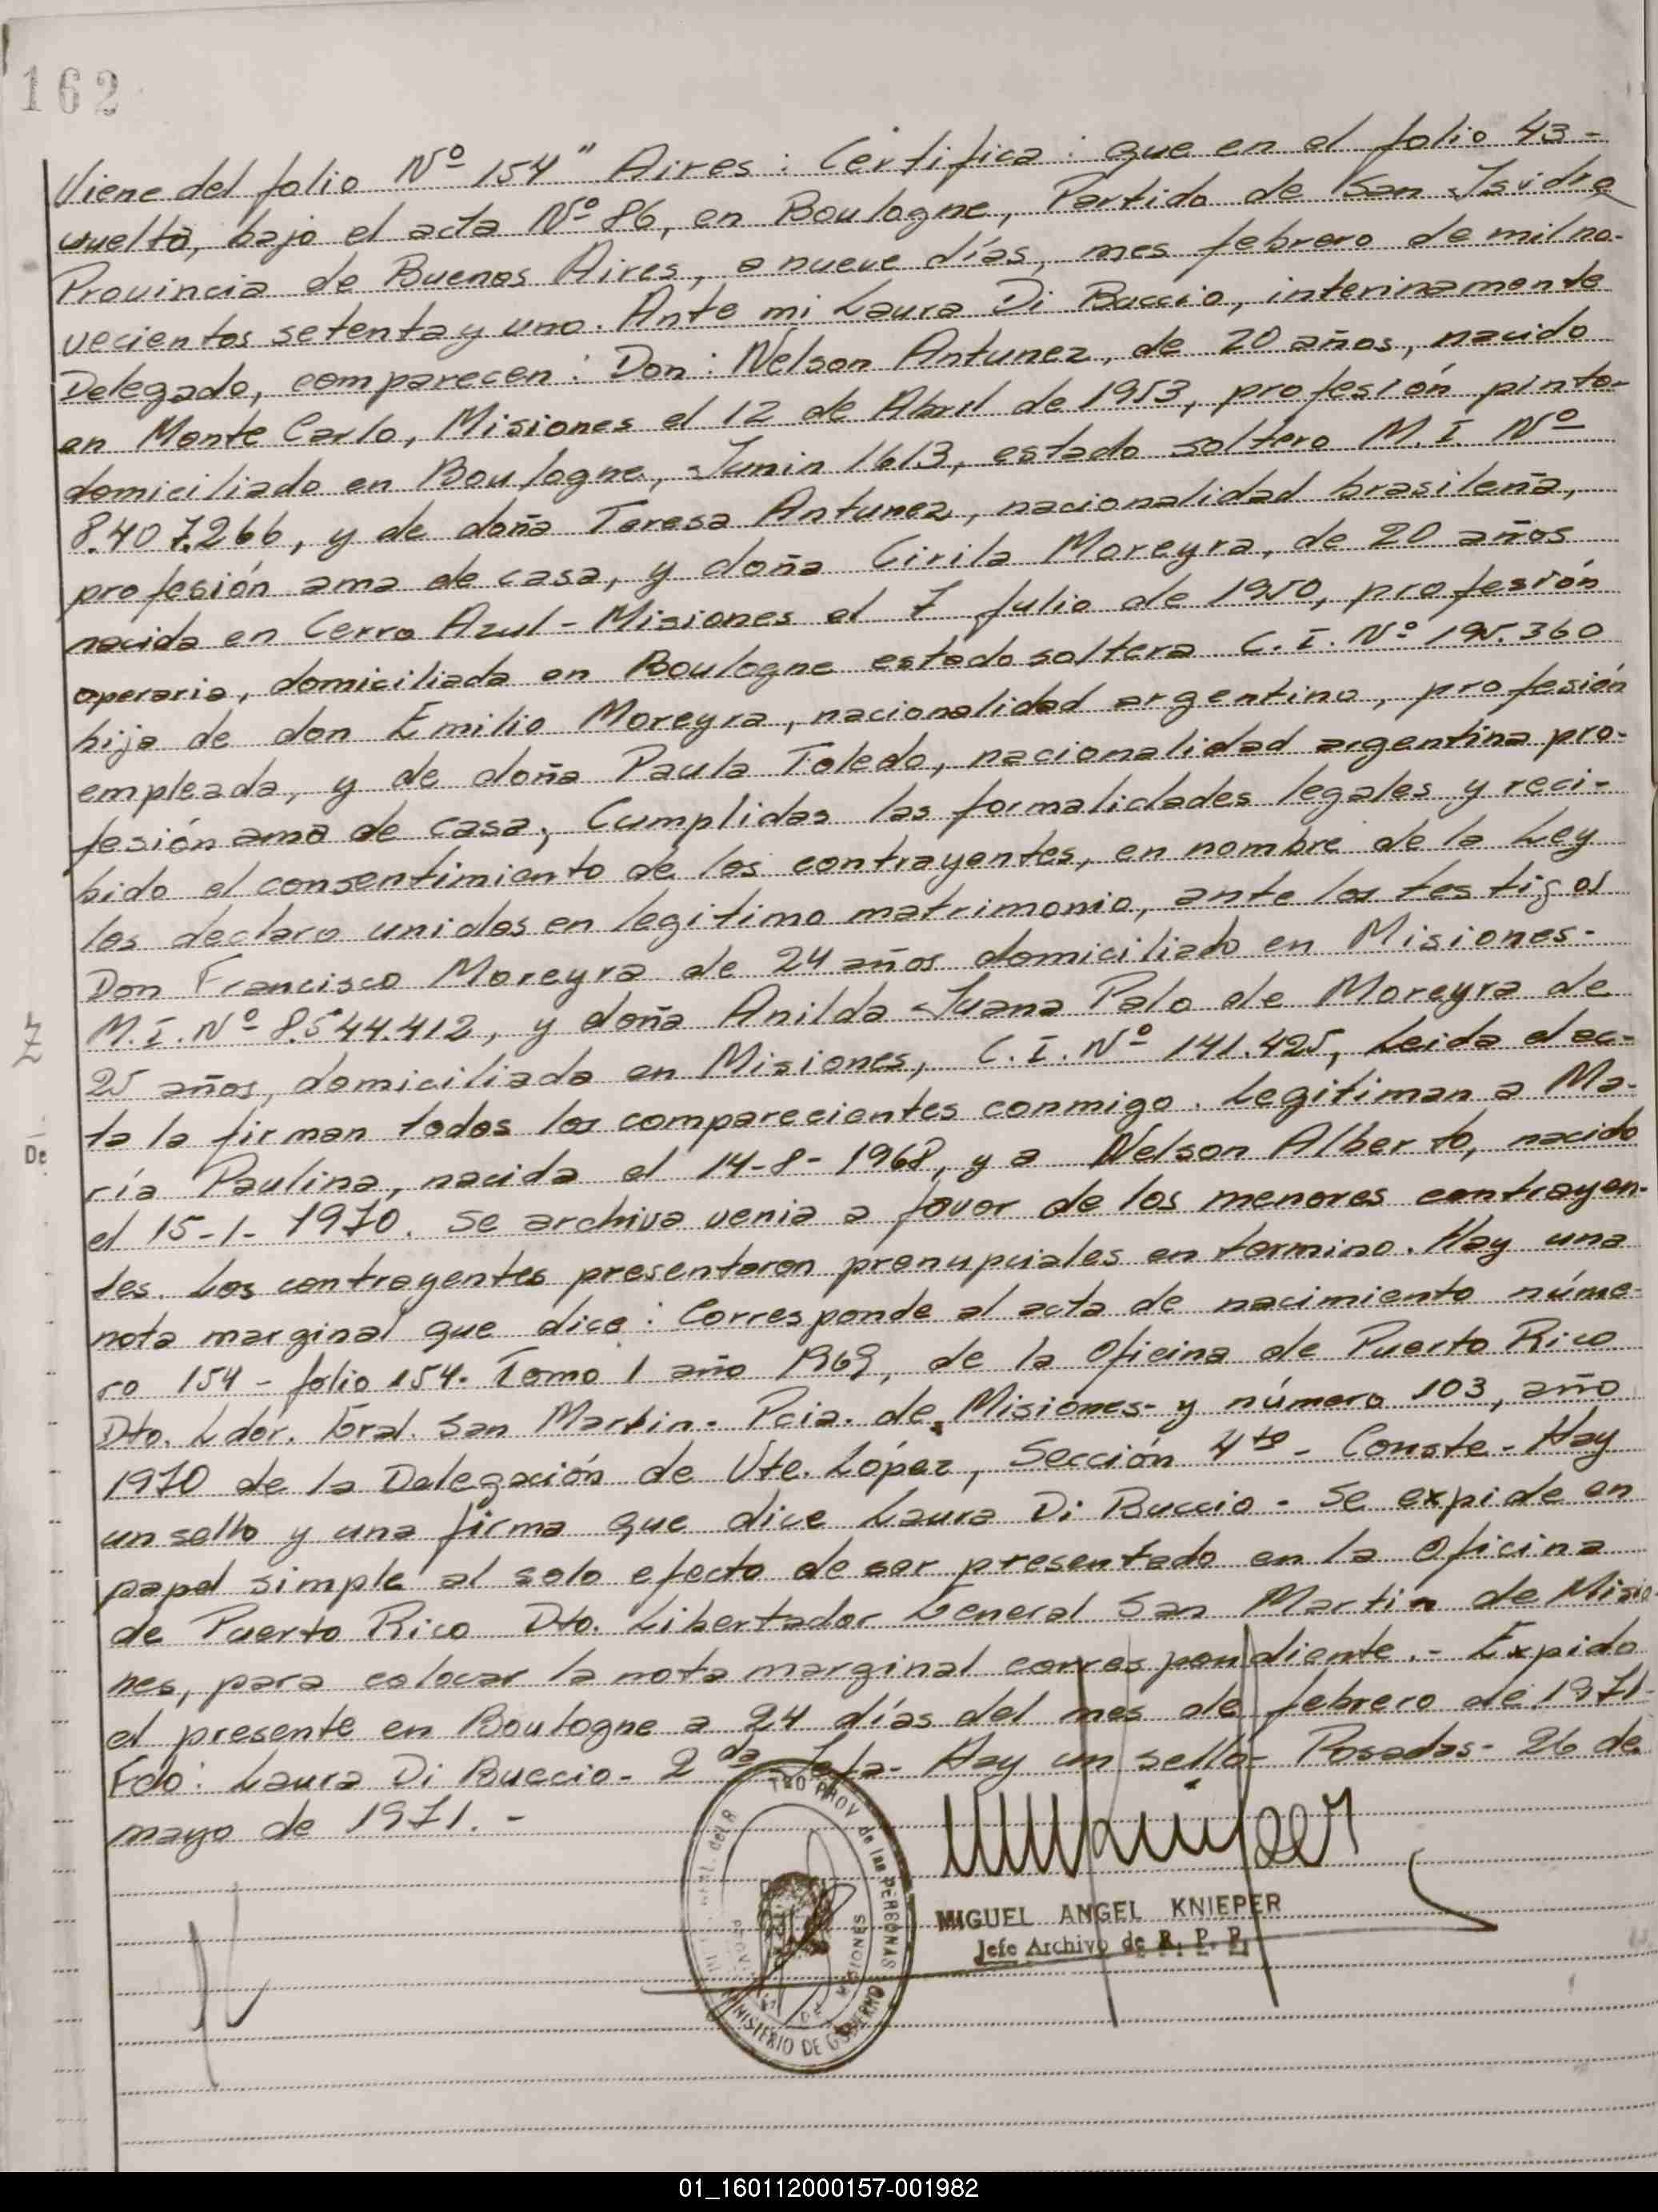 162
Viene del folio Nº 154" Aires: Certifica: que en el folio 43-
vuelta, bajo el acta Nº 86, en Boulogne, Partido de San Isidro
Provincia de Buenos Aires, a nueve días, mes febrero de mil no-
vecientos setenta y uno. Ante mi Laura Di Buccio, interinamente
Delegado, comparecen: Don: Nelson Antunez, de 20 años, nacido
en Monte Carlo, Misiones el 12 de Abril de 1953, profesión pinto-
domiciliado en Boulogne, Junin 1613, estado soltero M. I. Nº
8.407.266, y de doña Teresa Antunez, nacionalidad brasileña,
profesión ama de casa, y doña Cirila Moreyra, de 20 años
nacida en Cerro Azul - Misiones el 7 Julio de 1950, profesión
operaria, domiciliada en Boulogne estado soltera C. I. Nº 195.360
hija de don Emilio Moreyra, nacionalidad argentino, profesión
empleada, y de doña Paula Toledo, nacionalidad argentina pro-
fesión ama de casa, Cumplidas las formalidades legales y reci-
bido el consentimiento de los contrayentes, en nombre de la Ley
los declaro unidos en legitimo matrimonio, ante los testigos
Don Francisco Moreyra de 24 años domiciliado en Misiones-
M. I. Nº 8.544.412, y doña Anilda Juana Palo de Moreyra de
25 años, domiciliada en Misiones, C. I. Nº 141.425, Leida el ac-
ta la firman todos los comparecientes conmigo. Legitiman a Ma-
ría Paulina, nacida el 14-8-1968, y a Nelson Alberto, nacido
el 15-1-1970. Se archiva venia a favor de los menores contrayen-
tes. Los contrayentes presentaron prenupciales en termino. Hay una
nota marginal que dice: Corresponde al acta de nacimiento núme-
ro 154 - folio 154. Tomo 1 año 1969, de la Oficina de Puerto Rico
Dto. Ldor. Gral. San Martin. Pcia. de Misiones- y número 103, año
1970 de la Delegación de Vte. López, Sección 4ta - Conste - Hay
un sello y una firma que dice Laura Di Buccio - Se expide en
papel simple al solo efecto de ser presentado en la Oficina
de Puerto Rico Dto. Libertador General San Martin de Misio-
nes, para colocar la nota marginal correspondiente. - Expido
el presente en Boulogne a 24 días del mes de febrero de 1971-
Fdo: Laura Di Buccio - 2da Jefa - Hay un sello - Posadas - 26 de
mayo de 1971. -
PROV de las PERSONAS
MINISTERIO DE GOBIERNO
MISIONES
MIGUEL ANGEL KNIEPER
Jefe Archivo de R. P. P.
De
01_160112000157-001982